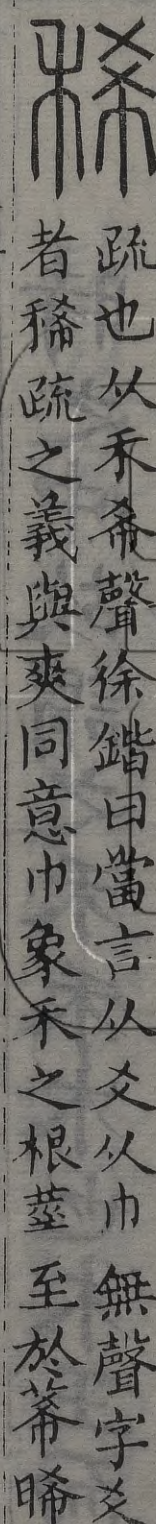 稀
疏也从禾希聲徐鍇曰當言从爻从巾無聲字爻
者稀疏之義與爽同意巾象禾之根莖至於莃晞